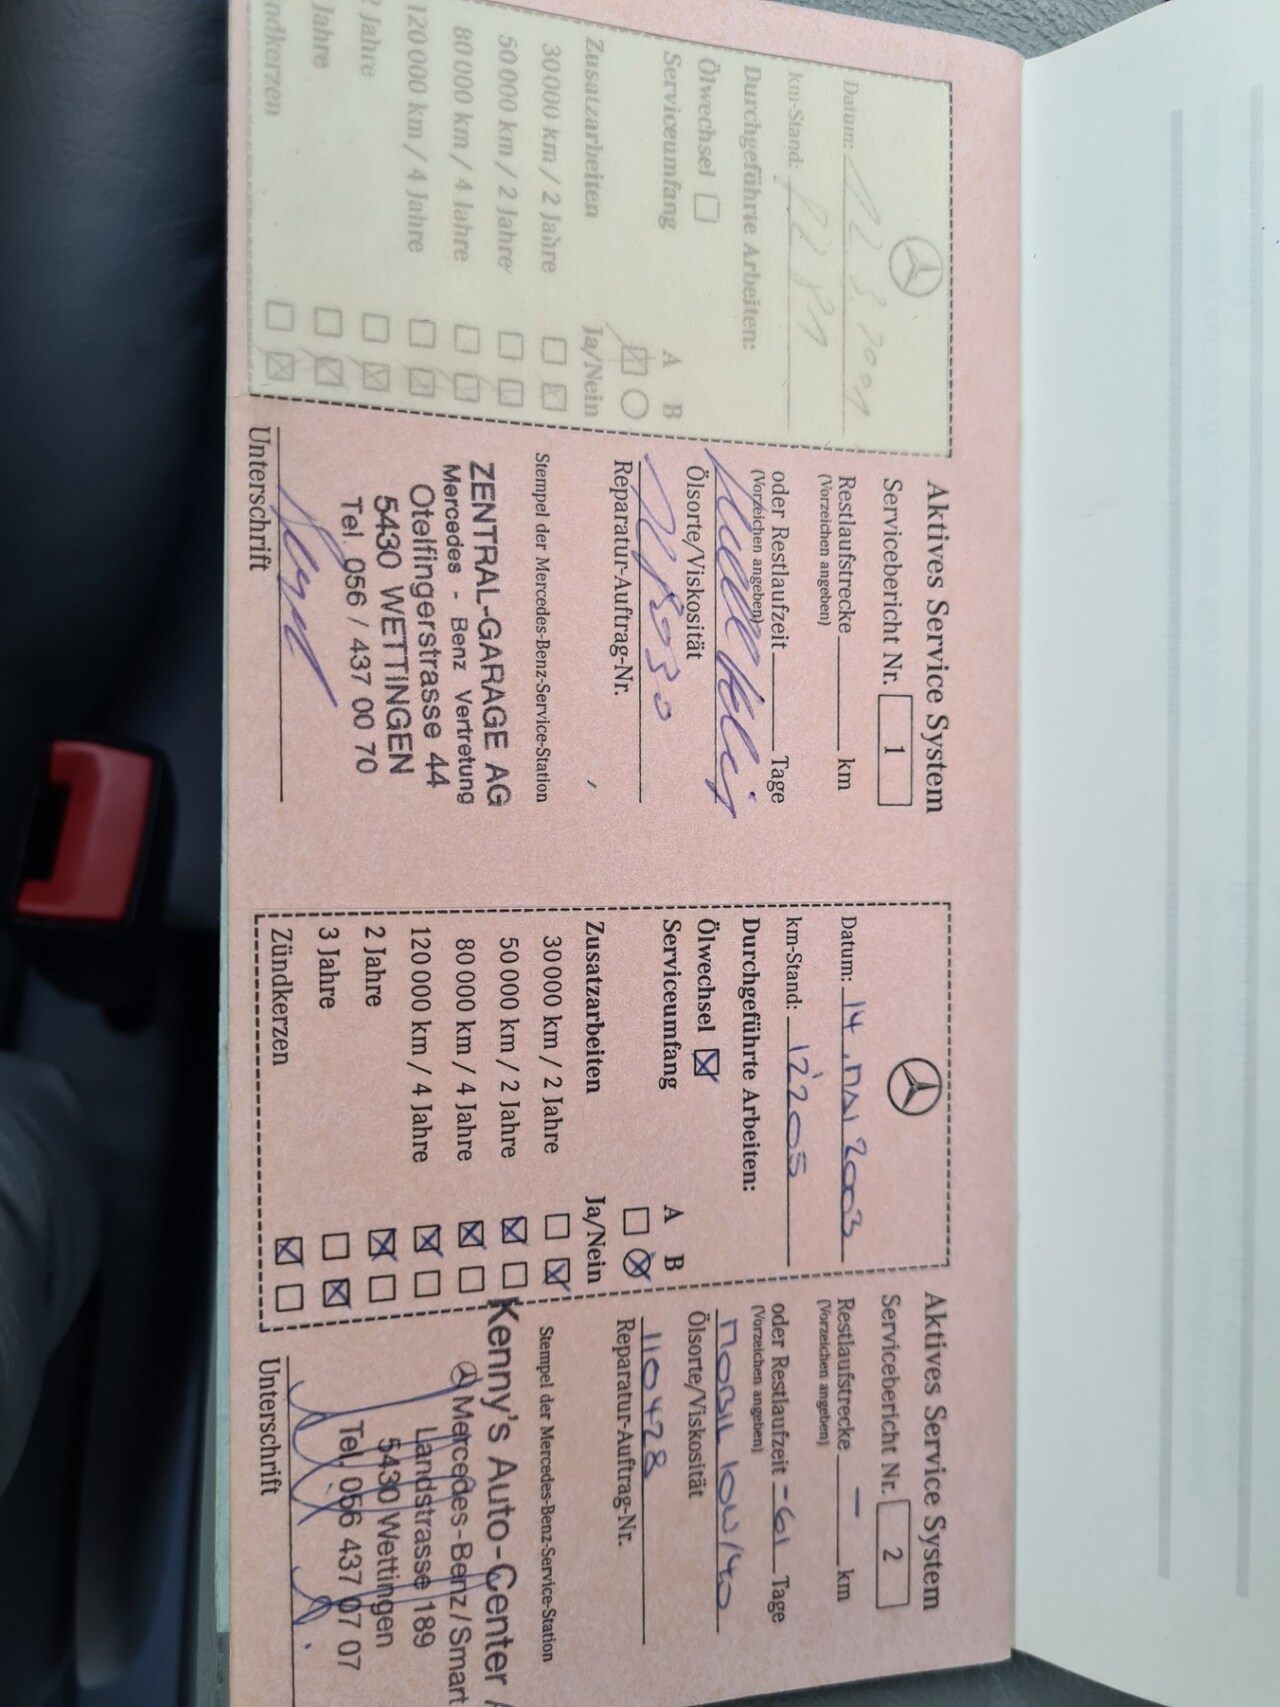 Datum:
km-Stand:
Durchgeführte Arbeiten:
Ölwechsel
Serviceumfang A B
Zusatzarbeiten Ja/Nein
30 000 km / 2 Jahre
50 000 km / 2 Jahre
80 000 km / 4 Jahre
120 000 km / 4 Jahre
2 Jahre
Jahre
ndkerzen
Aktives Service System
Servicebericht Nr. 1
Restlaufstrecke km
(Vorzeichen angeben)
oder Restlaufzeit Tage
(Vorzeichen angeben)
Ölsorte/Viskosität
Reparatur-Auftrag-Nr.
Stempel der Mercedes-Benz-Service-Station
ZENTRAL-GARAGE AG
Mercedes - Benz Vertretung
Otelfingerstrasse 44
5430 WETTINGEN
Tel. 056 / 437 00 70
Unterschrift
Datum: 14. MAI 2003
km-Stand: 12'205
Durchgeführte Arbeiten:
Ölwechsel
Serviceumfang A B
Zusatzarbeiten Ja/Nein
30 000 km / 2 Jahre
50 000 km / 2 Jahre
80 000 km / 4 Jahre
120 000 km / 4 Jahre
2 Jahre
3 Jahre
Zündkerzen
Aktives Service System
Servicebericht Nr. 2
Restlaufstrecke – km
(Vorzeichen angeben)
oder Restlaufzeit -61 Tage
(Vorzeichen angeben)
MOBIL 10W/40
Ölsorte/Viskosität
110428
Reparatur-Auftrag-Nr.
Stempel der Mercedes-Benz-Service-Station
Kenny's Auto-Center
Mercedes-Benz/Smart
Landstrasse 189
5430 Wettingen
Tel. 056 437 07 07
Unterschrift